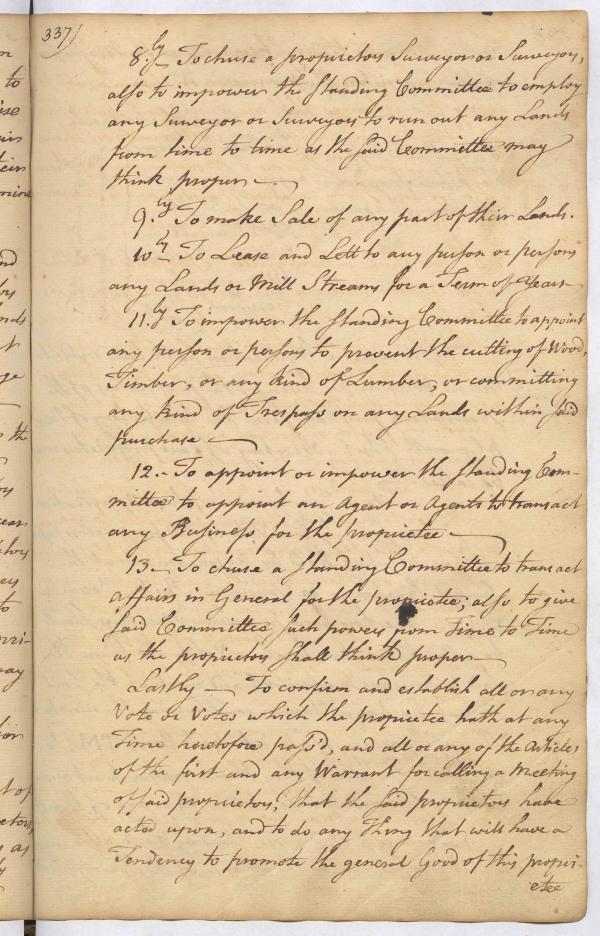 337)
8.ly To chuse a proprietors Surveyor or Surveyors,
also to impower the Standing Committee to employ
any Surveyor or Surveyors to run out any Lands
from time to time as the said Committee may
think proper
9.ly To make Sale of any part of their Lands.
10ly To Lease and Lett to any person or persons
any Lands or Mill Streams for a Term of Years
11.ly To impower the Standing Committee to appoint
any person or persons to prevent the cutting of Wood,
Timber, or any kind of Lumber, or committing
any kind of Trespass on any Lands within said
purchase
12.- To appoint or impower the Standing Com-
mittee to appoint an Agent or Agents to transact
any Business for the proprietee
13.- To chuse a Standing Committee to transact
affairs in General for the proprietee; also to give
said Committee such powers from Time to Time
as the proprietors shall think proper
Lastly — To confirm and establish all or any
Vote or Votes which the proprietee hath at any
Time heretofore pass'd, and all or any of the Articles
of the first and any Warrant for calling a Meeting
of said proprietors, that the said proprietors have
acted upon, and to do any Thing that will have a
Tendency to promote the general Good of this propri-
etee